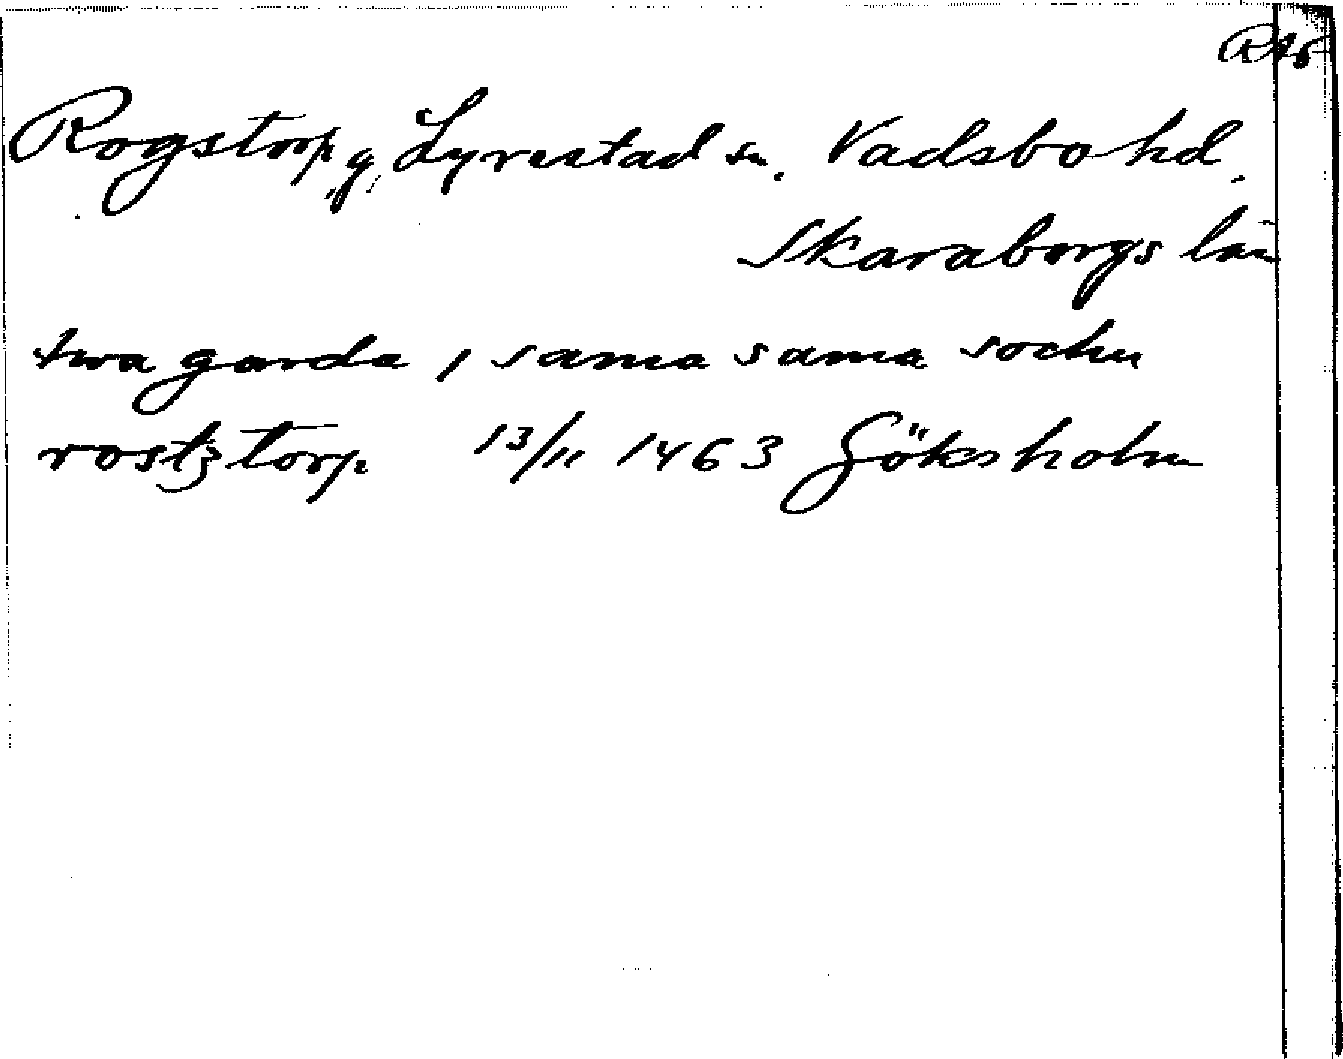 Rogstorp g, Lyrestad sn. Vadsbo hd.
Skaraborgs län
twa garda i sama sama sochn
rostztorp 13/11 1463 Göksholm